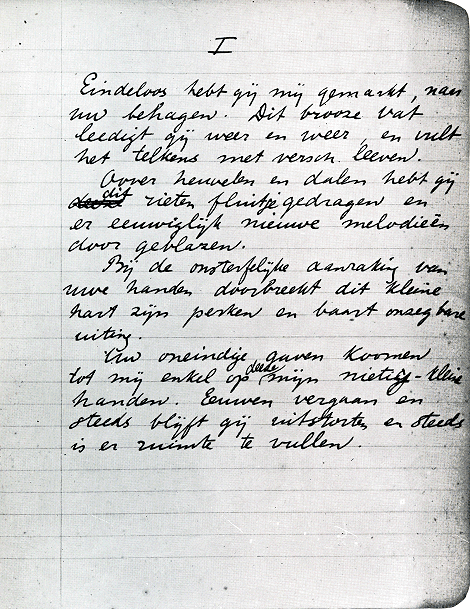 I
Eindeloos hebt gij mij gemaakt, naar
uw behagen. Dit brooze vat
leedigt gij weer en weer, en vult
het telkens met versch leeven.
Oover heuvelen en dalen hebt gij
dit rieten fluitje gedragen en
er eeuwiglijk nieuwe melodieën
door geblazen.
Bij de onsterfelijke aanraking van
uwe handen doorbreekt dit kleine
hart zijn perken en baart onzegbare
uiting.
Uw oneindige gaven koomen
tot mij enkel op deede mijn nietig-kleine
handen. Eeuwen vergaan en
steeds blijft gij uitstorten en steeds
is er ruimte te vullen.